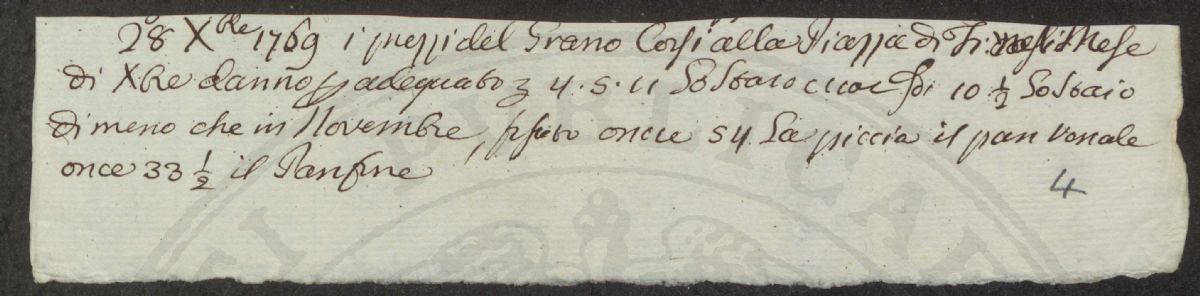 28 Xbre 1769 i prezzi del Grano Corsi alla Piazza di Fi: nel Mese
di Xbre danno p adequato 4. 5. 11 Lo Staio cioè di 10 ½ Lo Staio
di meno che in Novembre, fissato oncie 54 La piccia il pan Venale
once 33 ½ il Panfine
4